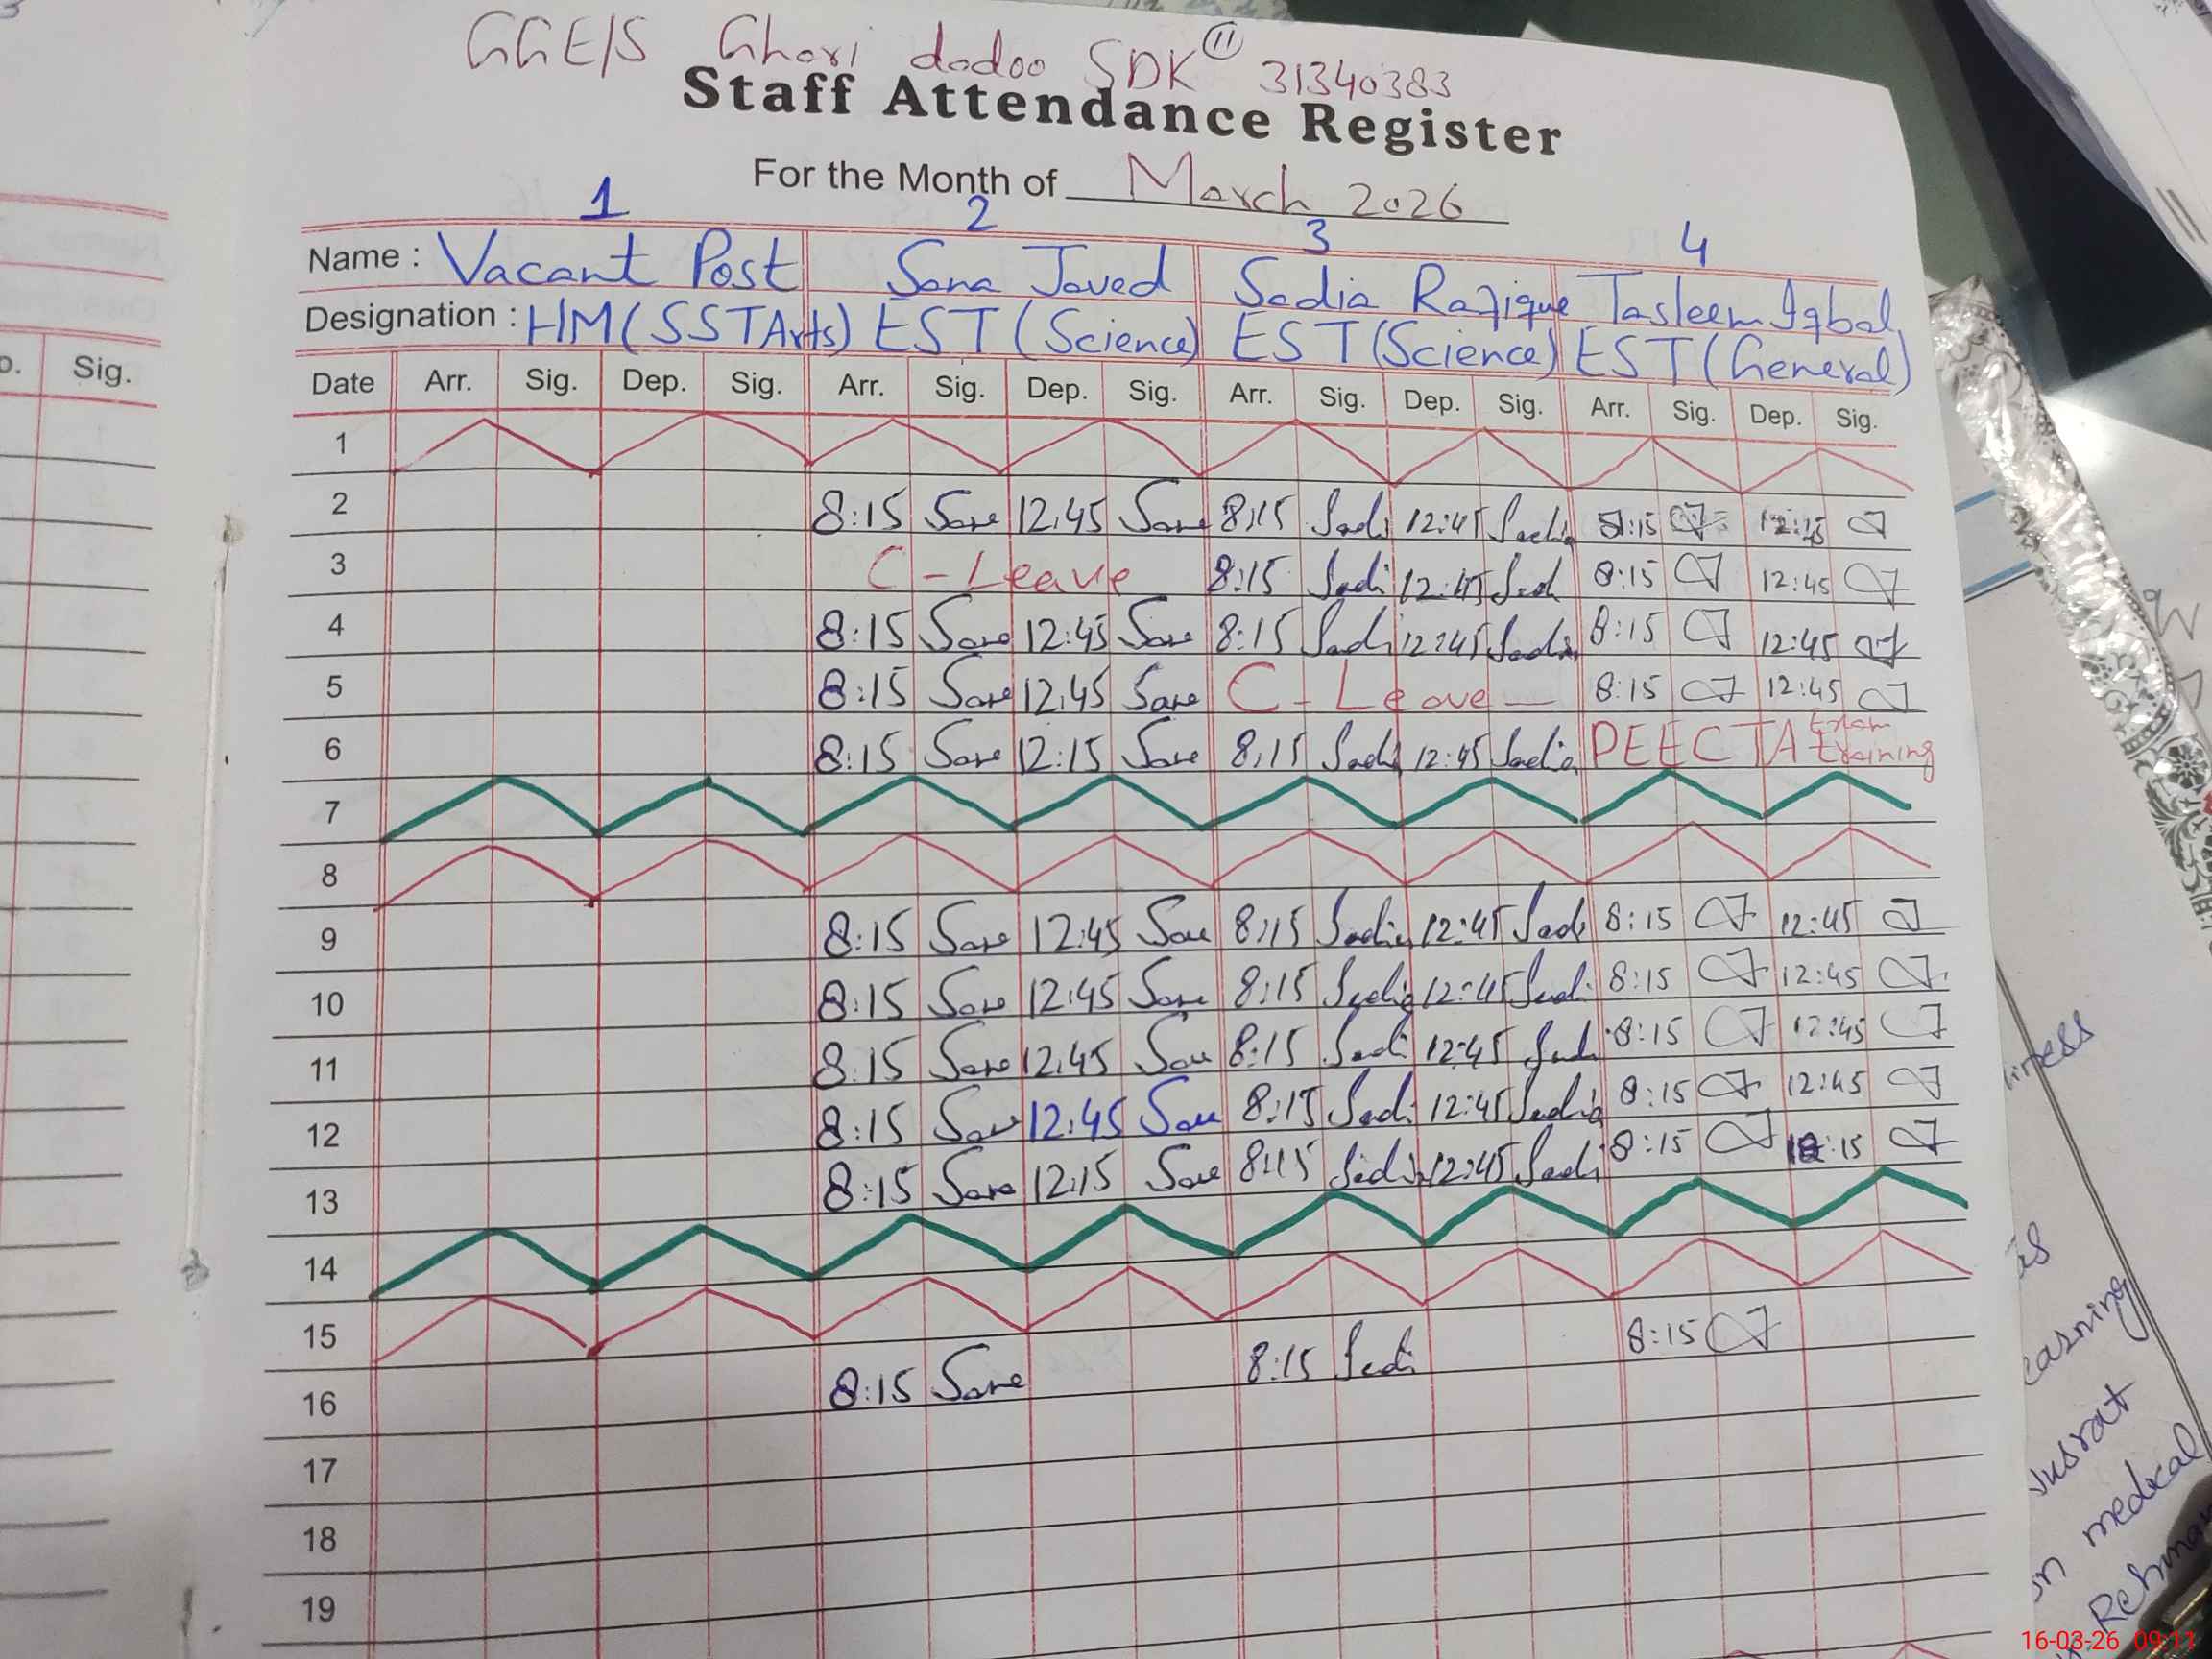 GGE/S Ghari dadoo SDK (11) 31340383
Staff Attendance Register
For the Month of March 2026
1 2 3 4
Name : Vacant Post Sana Javed Sadia Rafique Tasleem Iqbal
Designation : HM(SSTArts) EST (Science) EST (Science) EST (General)
o. Sig.
Date Arr. Sig. Dep. Sig. Arr. Sig. Dep. Sig. Arr. Sig. Dep. Sig. Arr. Sig. Dep. Sig.
1
2 8:15 Sana 12:45 Sana 8:15 Sadi 12:45 Sadia 8:15 12:45
3 C-Leave 8:15 Sadi 12:45 Sad 8:15 12:45
4 8:15 Sana 12:45 Sana 8:15 Sadi 12:45 Sadia 8:15 12:45
5 8:15 Sana 12:45 Sana C-Leave 8:15 12:45
6 8:15 Sana 12:15 Sana 8:15 Sadi 12:45 Sadia PEECTA Exam training
7
8
9 8:15 Sana 12:45 Sana 8:15 Sadia 12:45 Sadi 8:15 12:45
10 8:15 Sana 12:45 Sana 8:15 Sadia 12:45 Sadi 8:15 12:45
11 8:15 Sana 12:45 Sana 8:15 Sadi 12:45 Sadi 8:15 12:45
12 8:15 Sana 12:45 Sana 8:15 Sadi 12:45 Sadia 8:15 12:45
13 8:15 Sana 12:15 Sana 8:15 Sadia 12:45 Sadi 8:15 12:15
14
15
16 8:15 Sana 8:15 Sadi 8:15
17
18
19
medical
16-03-26 09:11